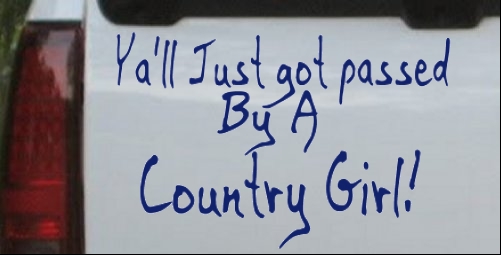 Ya'll Just got passed
By A
Country Girl!